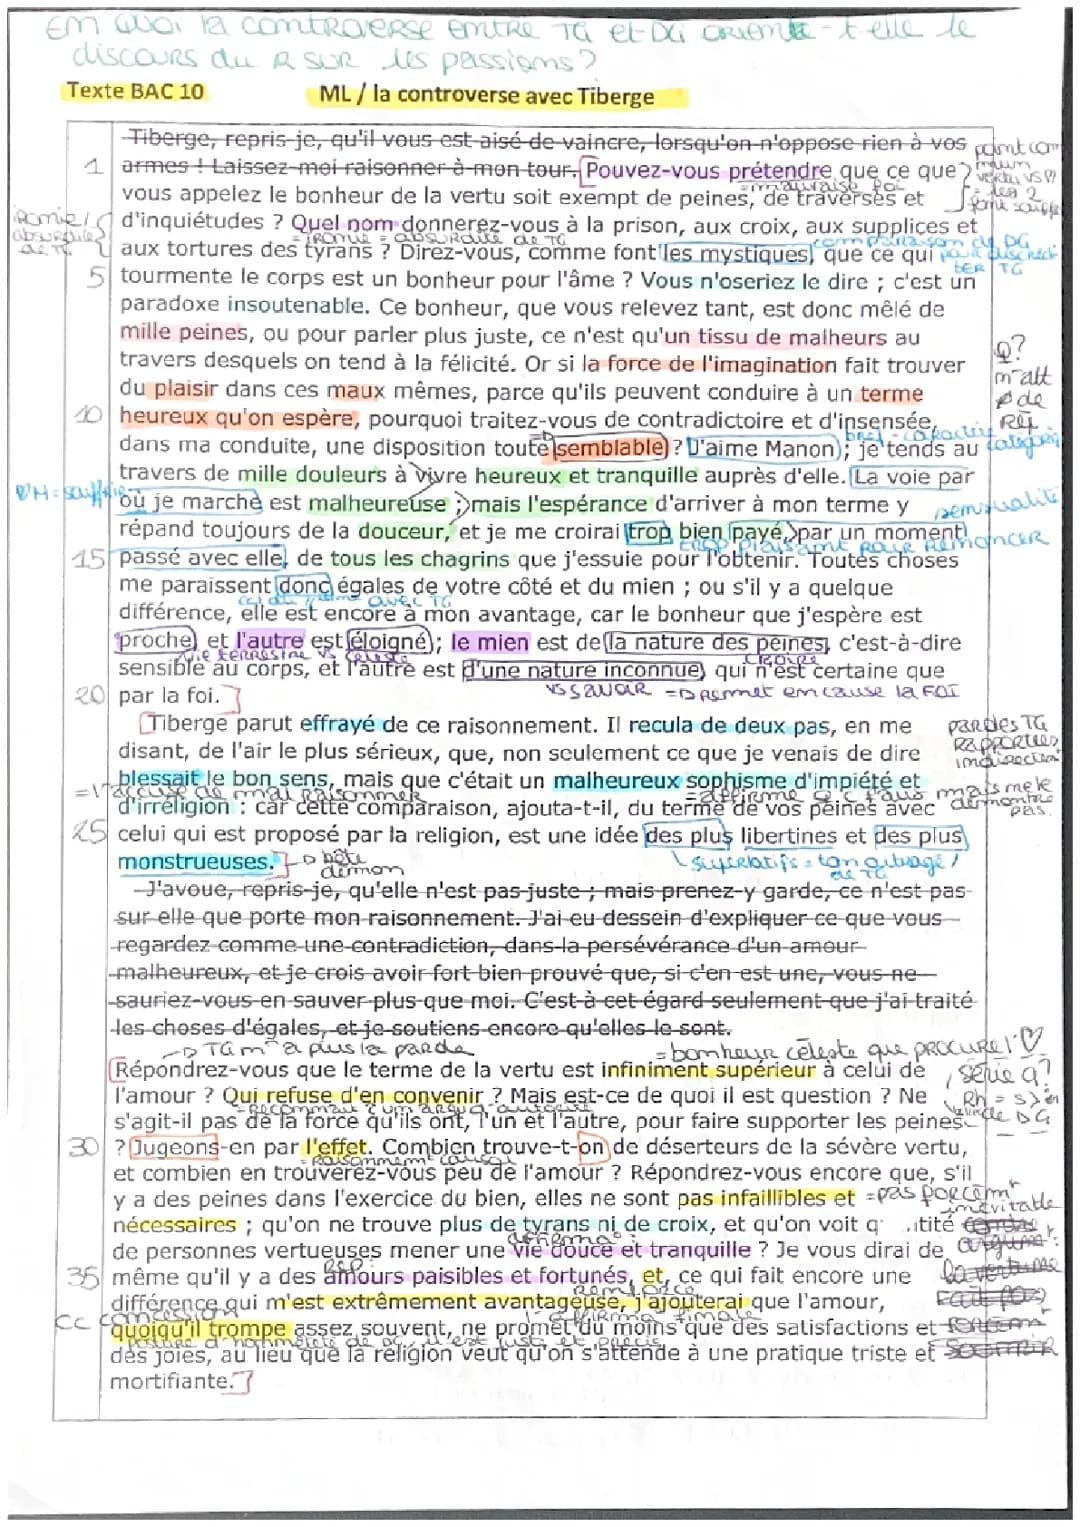 Em quoi la controverse entre TG et DG oriente-t-elle le
discours du R sur les passions?
Texte BAC 10 ML / la controverse avec Tiberge
Tiberge, repris-je, qu'il vous est aisé de vaincre, lorsqu'on n'oppose rien à vos
point commun
1 armes ! Laissez-moi raisonner à mon tour. Pouvez-vous prétendre que ce que
vertu vs
= mauvaise foi
vous appelez le bonheur de la vertu soit exempt de peines, de traverses et
les 2
font souffrir
ironie / absurdité de TG
d'inquiétudes ? Quel nom donnerez-vous à la prison, aux croix, aux supplices et
= ironie = absurdité de TG
comparaison de DG pour discréditer TG
aux tortures des tyrans ? Direz-vous, comme font les mystiques, que ce qui
5 tourmente le corps est un bonheur pour l'âme ? Vous n'oseriez le dire ; c'est un
paradoxe insoutenable. Ce bonheur, que vous relevez tant, est donc mêlé de
mille peines, ou pour parler plus juste, ce n'est qu'un tissu de malheurs au
travers desquels on tend à la félicité. Or si la force de l'imagination fait trouver
Q?
du plaisir dans ces maux mêmes, parce qu'ils peuvent conduire à un terme
m̄ att
10 heureux qu'on espère, pourquoi traitez-vous de contradictoire et d'insensée,
de
Rép
bref = caractère catégorique
dans ma conduite, une disposition toute semblable ? J'aime Manon ; je tends au
travers de mille douleurs à vivre heureux et tranquille auprès d'elle. La voie par
♡M = souffrir
où je marche est malheureuse ; mais l'espérance d'arriver à mon terme y
sensualité
répand toujours de la douceur, et je me croirai trop bien payé, par un moment
trop plaisant pour Renoncer
15 passé avec elle, de tous les chagrins que j'essuie pour l'obtenir. Toutes choses
me paraissent donc égales de votre côté et du mien ; ou s'il y a quelque
avec TG
différence, elle est encore à mon avantage, car le bonheur que j'espère est
proche, et l'autre est éloigné ; le mien est de la nature des peines, c'est-à-dire
vie terrestre vs céleste
croire
sensible au corps, et l'autre est d'une nature inconnue, qui n'est certaine que
vs savoir =D Remet en cause la FOI
20 par la foi.
Tiberge parut effrayé de ce raisonnement. Il recula de deux pas, en me
paroles TG
Rapportées
indirectes
disant, de l'air le plus sérieux, que, non seulement ce que je venais de dire
blessait le bon sens, mais que c'était un malheureux sophisme d'impiété et
= l'accuse de mal raisonner
= affirme q c faux mais ne le démontre pas.
d'irréligion : car cette comparaison, ajouta-t-il, du terme de vos peines avec
25 celui qui est proposé par la religion, est une idée des plus libertines et des plus
monstrueuses.
-D bête
démon
superlatifs = ton outragé / de TG
J'avoue, repris-je, qu'elle n'est pas juste ; mais prenez-y garde, ce n'est pas
sur elle que porte mon raisonnement. J'ai eu dessein d'expliquer ce que vous
regardez comme une contradiction, dans la persévérance d'un amour
malheureux, et je crois avoir fort bien prouvé que, si c'en est une, vous ne
sauriez vous en sauver plus que moi. C'est à cet égard seulement que j'ai traité
les choses d'égales, et je soutiens encore qu'elles le sont.
-D TG m̄ a plus la parole
= bonheur céleste que procure l'♡
Répondrez-vous que le terme de la vertu est infiniment supérieur à celui de
série q?
l'amour ? Qui refuse d'en convenir ? Mais est-ce de quoi il est question ? Ne
= Reconnait
s'agit-il pas de la force qu'ils ont, l'un et l'autre, pour faire supporter les peines
de DG
30 ? Jugeons-en par l'effet. Combien trouve-t-on de déserteurs de la sévère vertu,
= raisonnem̄ causal
et combien en trouverez-vous peu de l'amour ? Répondrez-vous encore que, s'il
y a des peines dans l'exercice du bien, elles ne sont pas infaillibles et
= pas forcemt inevitable
nécessaires ; qu'on ne trouve plus de tyrans ni de croix, et qu'on voit q tité
de personnes vertueuses mener une vie douce et tranquille ? Je vous dirai de
Rép:
35 même qu'il y a des amours paisibles et fortunés, et, ce qui fait encore une
Renforce
différence qui m'est extrêmement avantageuse, j'ajouterai que l'amour,
CC concession
affirma° finale
quoiqu'il trompe assez souvent, ne promet du moins que des satisfactions et
posture d'honnêteté de DG, il est juste et précis
des joies, au lieu que la religion veut qu'on s'attende à une pratique triste et
mortifiante.